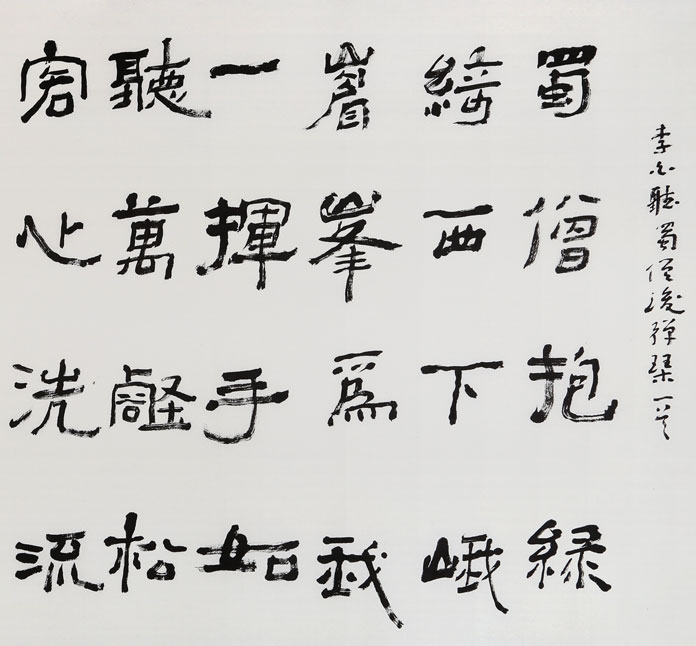 李白聽蜀僧浚彈琴一首
蜀僧抱綠
綺西下峨
嵋峯爲我
一揮手如
聽萬壑松
客心洗流